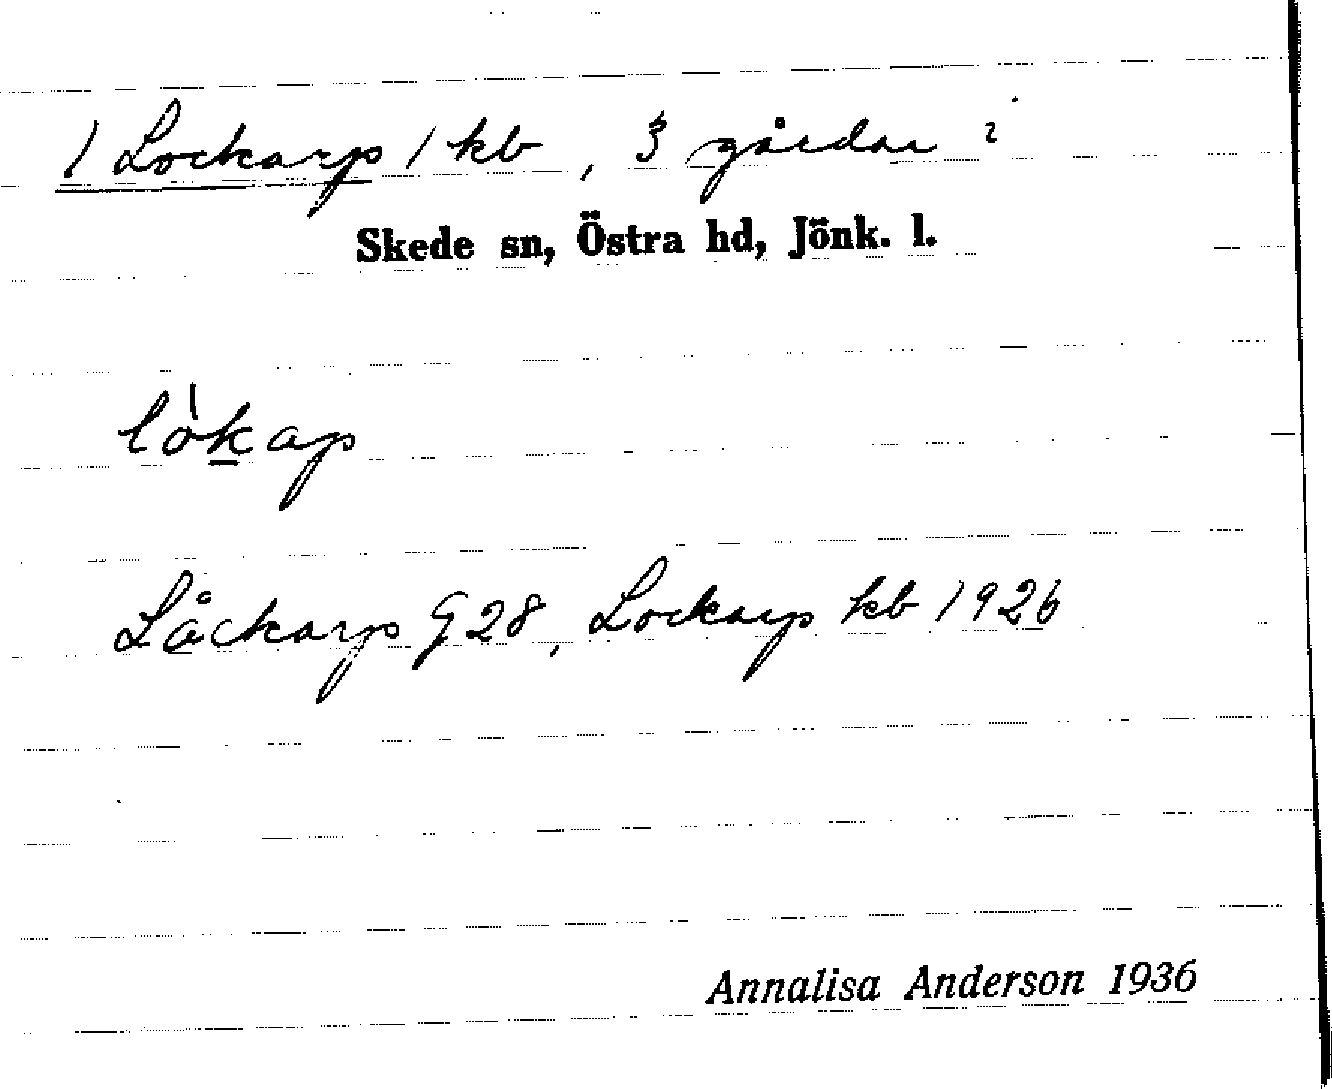 / Lockarp / kb, 3 gårdar i
Skede sn, Östra hd, Jönk. l.
lòkap
Låckarp G 28, Lockarp kb 1926
Annalisa Anderson 1936